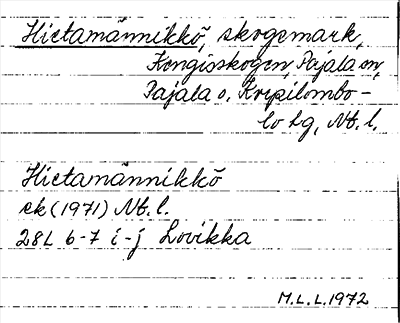 Hietamännikkö, skogsmark,
Kengisskogen, Pajala sn,
Pajala o. Korpilombo-
lo lg, Nb. l.
Hietamännikkö
ek (1971) Nb. l.
28L 6-7 i-j Lovikka
M.L.L. 1972